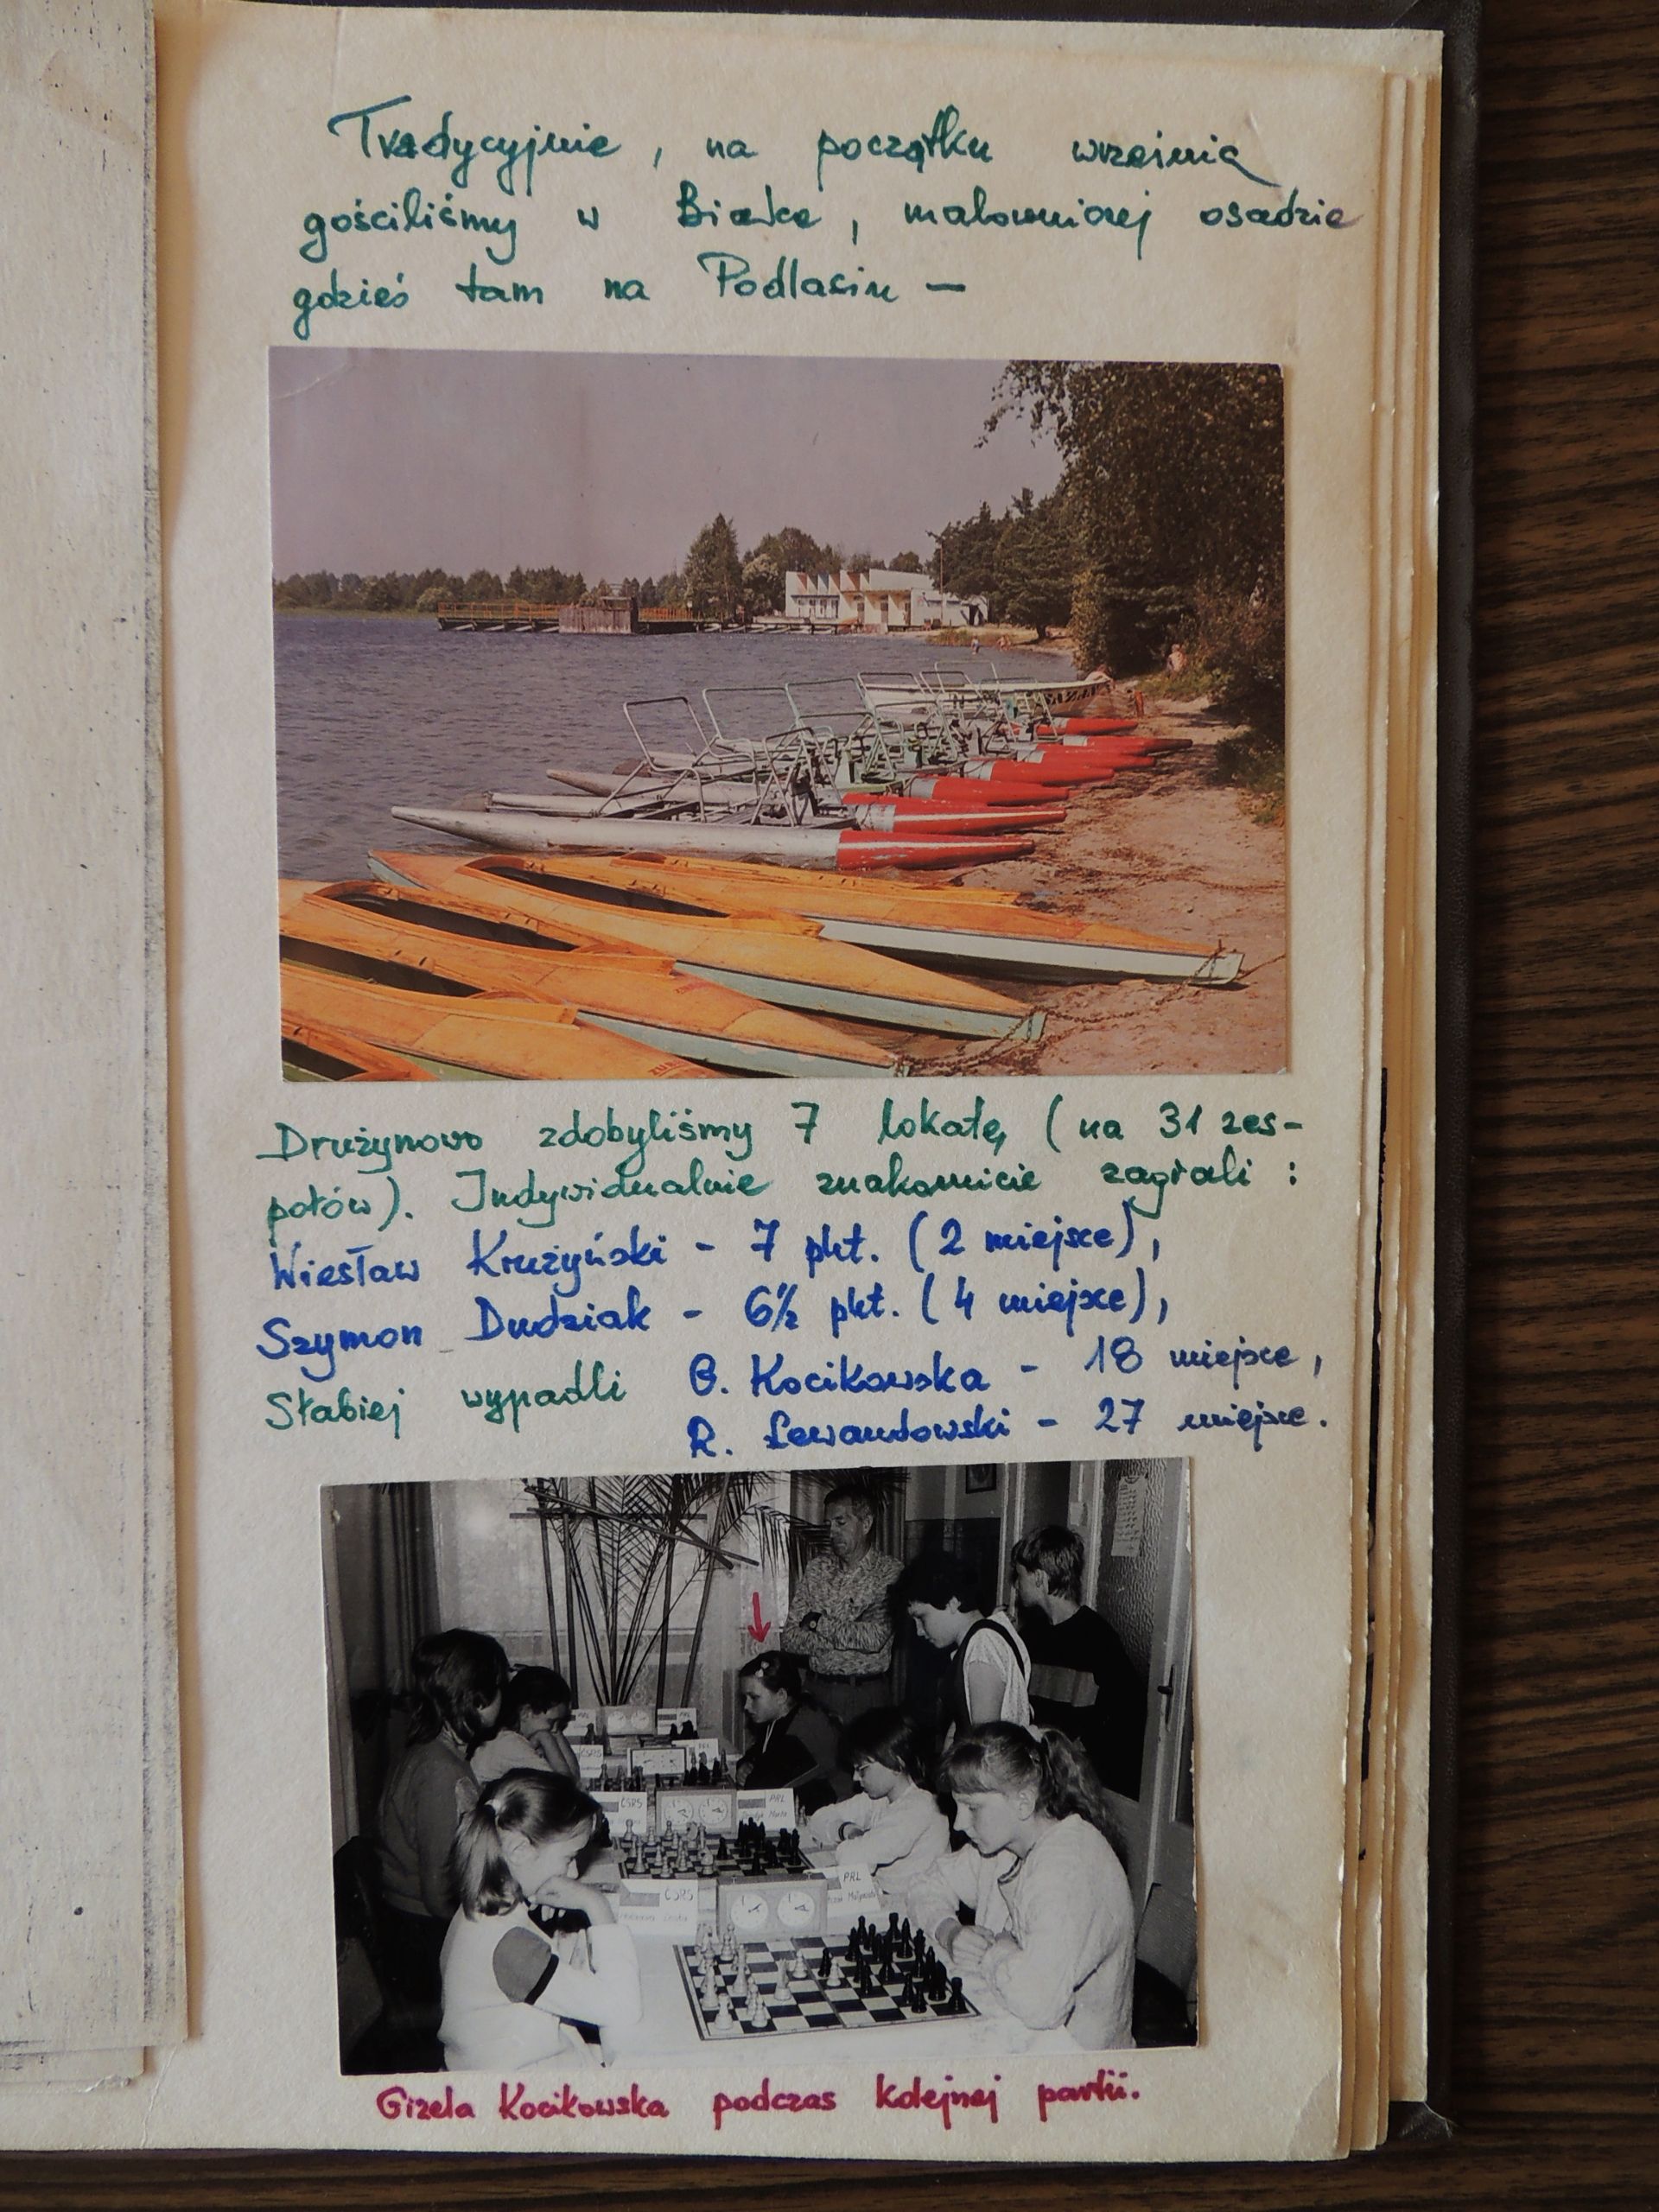 Tradycyjnie, na początku września
gościliśmy w Białce, malowniczej osadzie
gdzieś tam na Podlasiu —
Drużynowo zdobyliśmy 7 lokatę (na 31 zes-
połów). Indywidualnie znakomicie zagrali:
Wiesław Krużyński - 7 pkt. (2 miejsce),
Szymon Dudziak - 6½ pkt. (4 miejsce),
Słabiej wypadli G. Kocikowska - 18 miejsce,
R. Lewandowski - 27 miejsce.
PRL
CSRS
PRL
CSRS
PRL
Gizela Kocikowska podczas kolejnej partii.